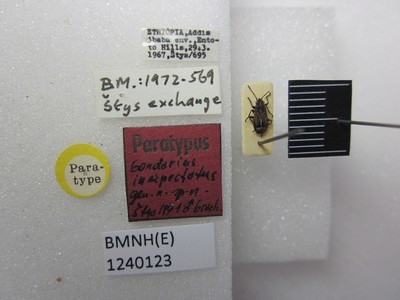 ETHIOPIA, Addis
Ababa env., Ento-
to Hills, 29.3.
1967, Štys/695
BM.: 1972-569
Štys exchange
Para-
type
Paratypus
Gondarius
inexpectatus
gen. n. sp. n.
Štys
BMNH(E)
1240123